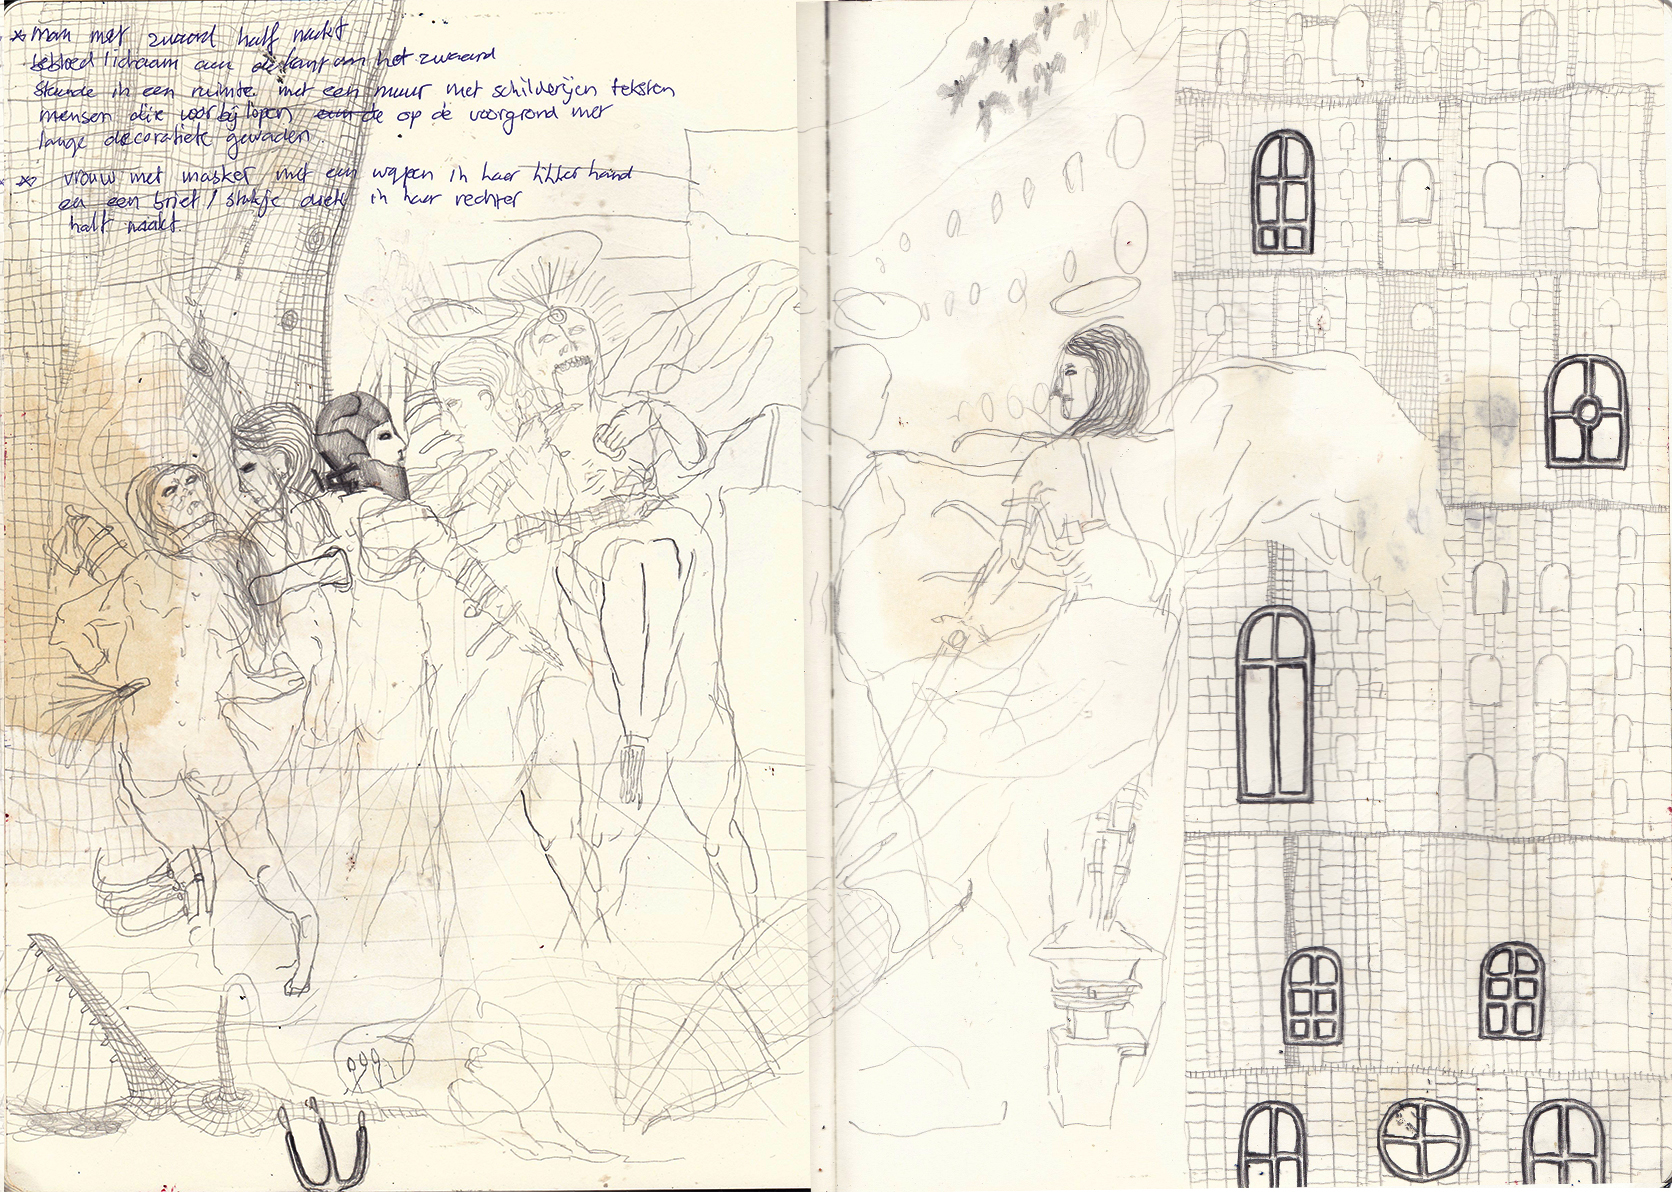 * man met zwaard half nackt
bebloed lichaam aan de kant van het zwaard
staande in een ruimte met een muur met schilderijen teksten
mensen die voorbij lopen de op de voorgrond met
lange decoratieve gewaden.
* vrouw met masker met een wapen in haar linker hand
en een brief / stukje doek in haar rechter
half naakt